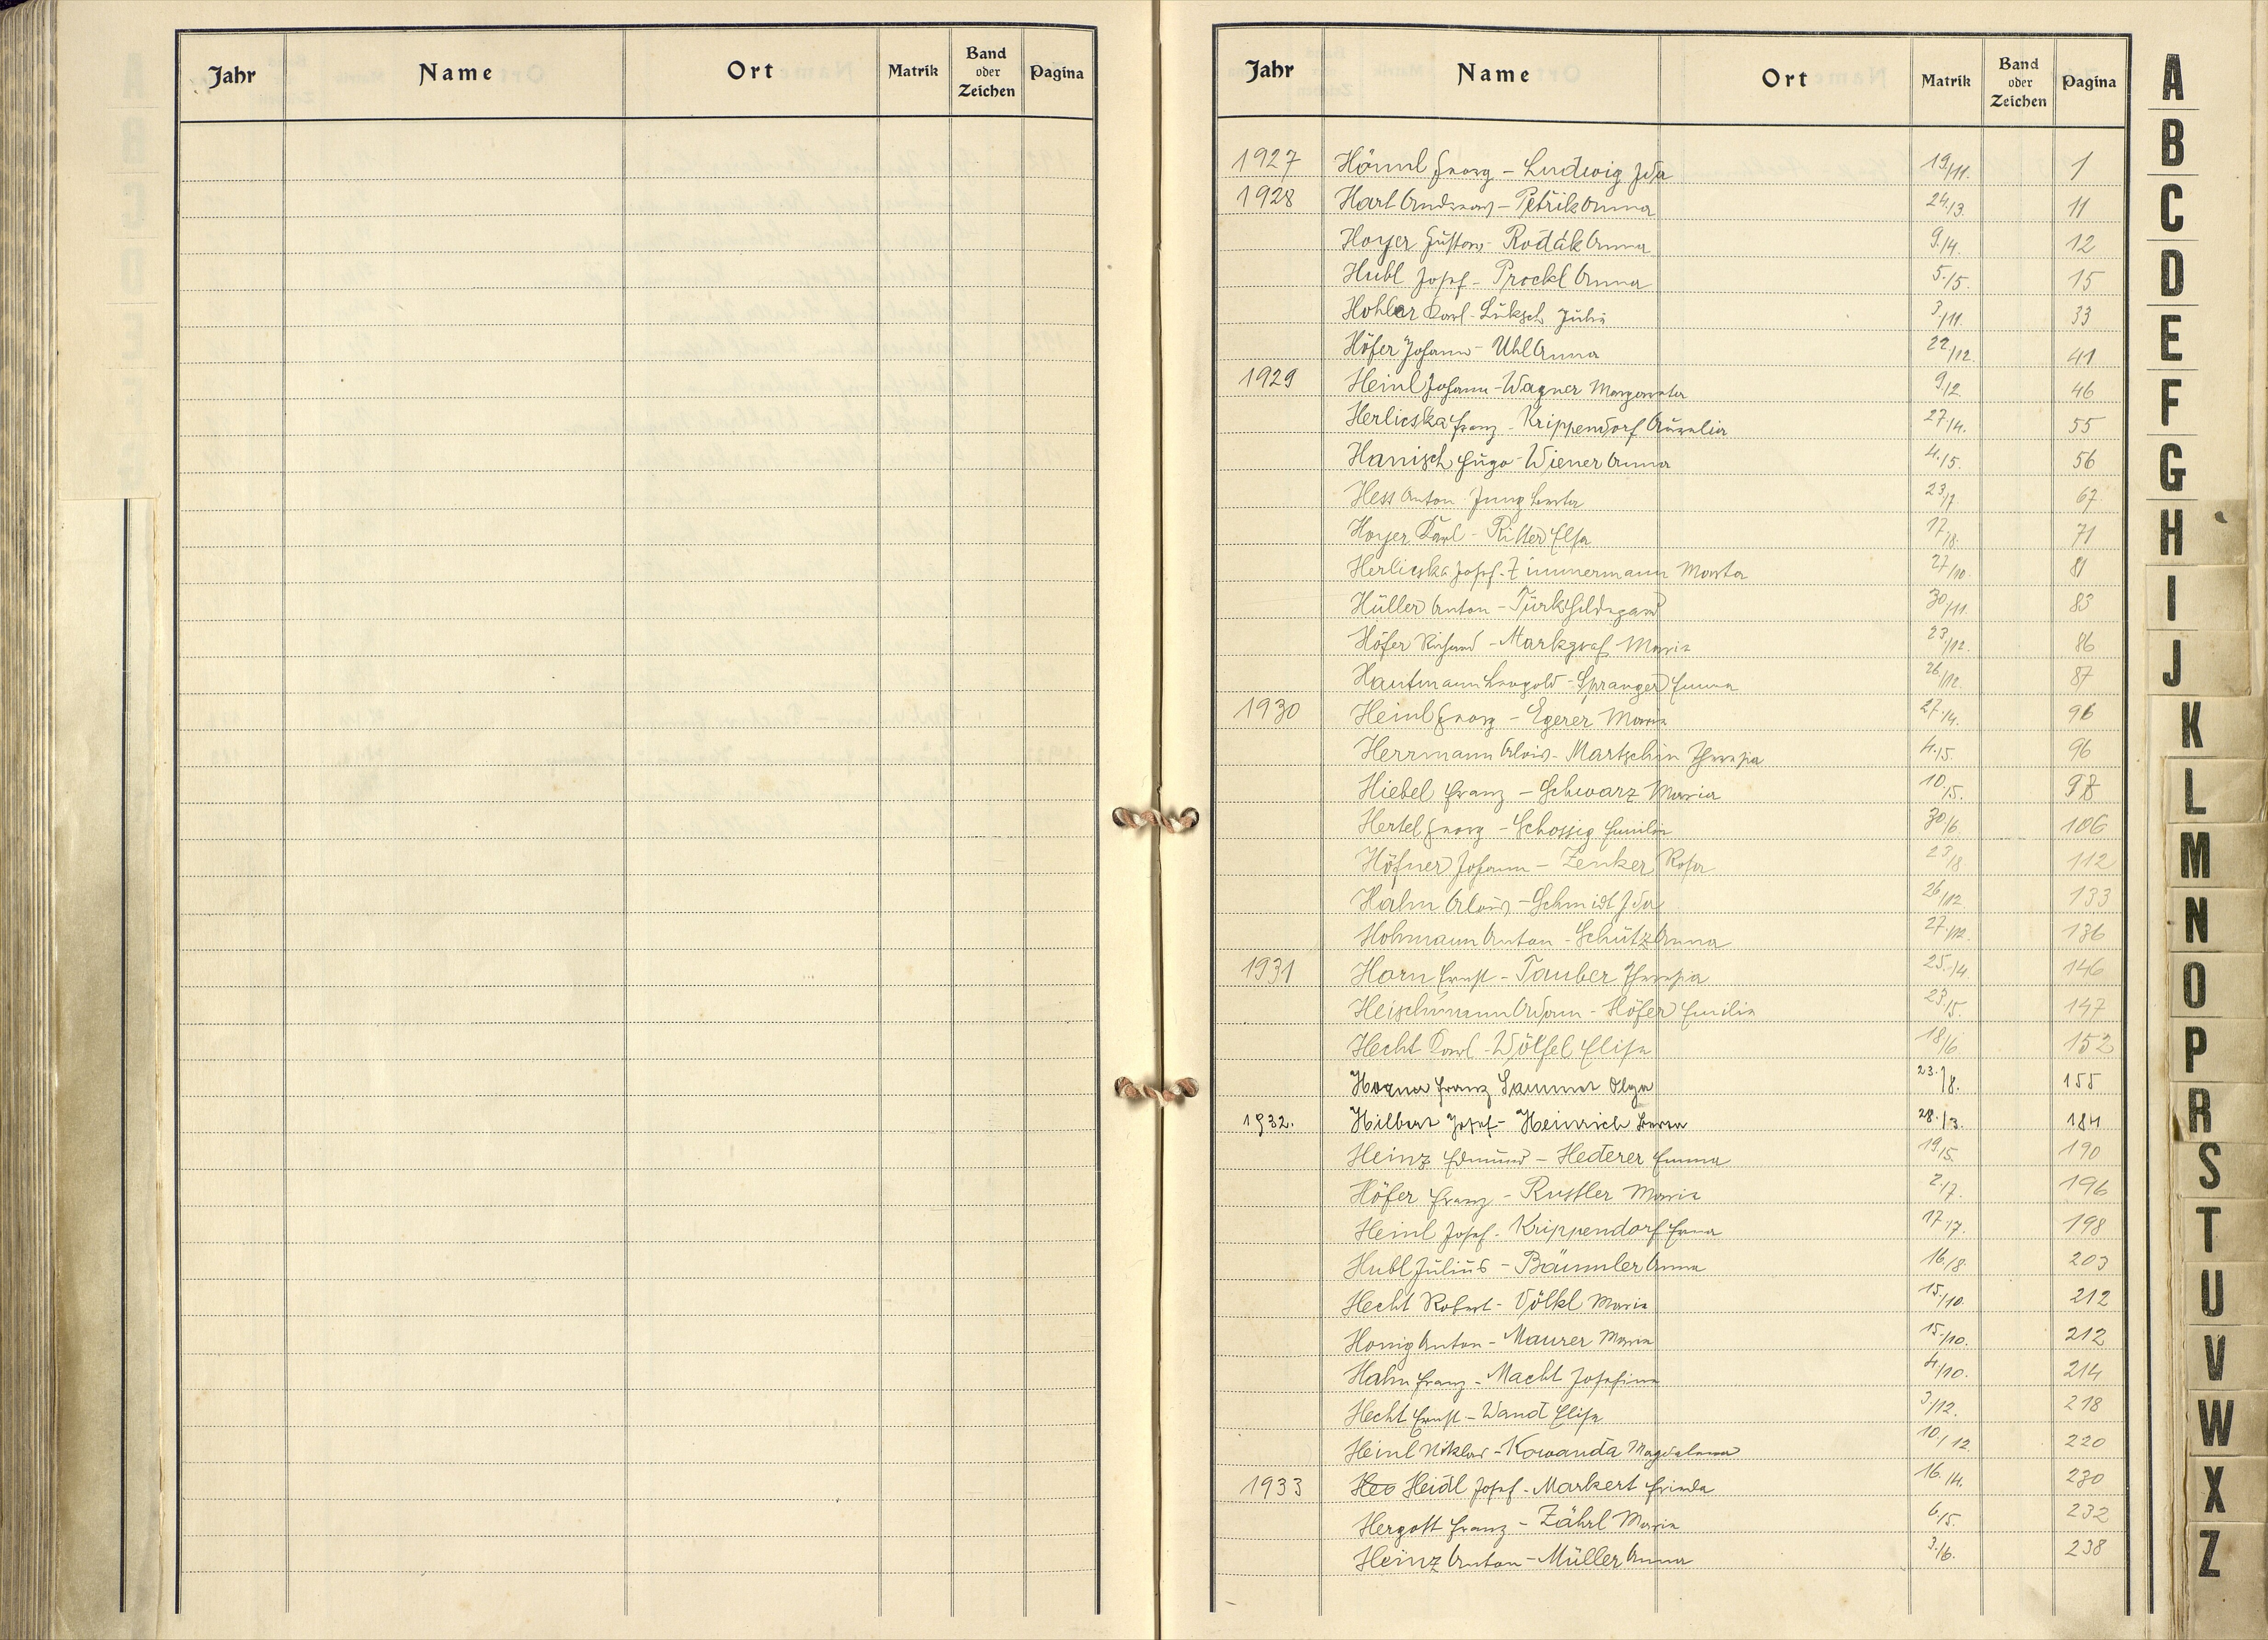 Jahr Name Ort Matrik Band oder Zeichen Pagina
Jahr Name Ort Matrik Band oder Zeichen Pagina
1927 Hönnl Georg – Ludwig Ida 19/11. 1
1928 Harl Andreas – Petřik Anna 24./3. 11
Hoyer Gustav – Rodák Anna 9./4. 12
Hubl Josef – Prockl Anna 5./5. 15
Hohler Karl – Luksch Julie 3/11. 33
Höfer Johann – Uhl Anna 22/12. 41
1929 Heinl Johann – Wagner Margareta 9./2 46
Herlicska Franz – Krippendorf Aurelia 27/4. 55
Hanisch Hugo – Wiener Anna 4./5. 56
Hess Anton Jung Berta 23/7 67
Hoyer Karl – Ritter Elsa 17/8. 71
Herlicska Josef – Zimmermann Marta 27/10. 81
Hüller Anton – Türk Hildegard 30/11. 83
Höfer Richard – Markgraf Maria 23/12. 86
Hautmann Leopold – Spranger Emma 26/12. 87
1930 Heinl Georg – Egerer Maria 27./4. 96
Herrmann Alois – Martschin Theresia 4./5. 96
Hiebel Franz – Schwarz Maria 10./5. 98
Hertel Georg – Schossig Emilie 30/6. 106
Höfner Johann – Zenker Rosa 23/8 112
Hahn Alois – Schmidl Ida 26/12 133
Hohmann Anton – Schütz Anna 27./12. 136
1931 Horn Ernst – Tauber Theresia 25./4. 146
Heischmann Adam – Höfer Emilie 23./5. 147
Hecht Karl – Wölfel Elisa 18/6. 152
Franz Sammet Olga 23./8. 155
1932. Hilbert Josef – Heinrich Berta 28./3. 184
Heinz Edmund – Hederer Emma 19./5. 190
Höfer Franz – Rustler Maria 2./7. 196
Heinl Josef – Krippendorf Erna 17./7. 198
Hubl Julius – Bäumler Anna 16./8. 203
Hecht Robert – Völkl Maria 15./10. 212
Honig Anton – Maurer Maria 15./10. 212
Hahn Franz – Macht Josefine 4./10. 214
Hecht Ernst – Wand Elisa 3/12. 218
Heinl Niklas – Kowanda Magdalena 10./12. 220
1933 Heo Heidl Josef – Markert Frieda 16./4. 230
Hergott Franz – Zährl Maria 6./5. 232
Heinz Anton – Müller Anna 3./6. 238
A
B
C
D
E
F
G
H
I
J
K
L
M
N
O
P
R
S
T
U
V
W
X
Z